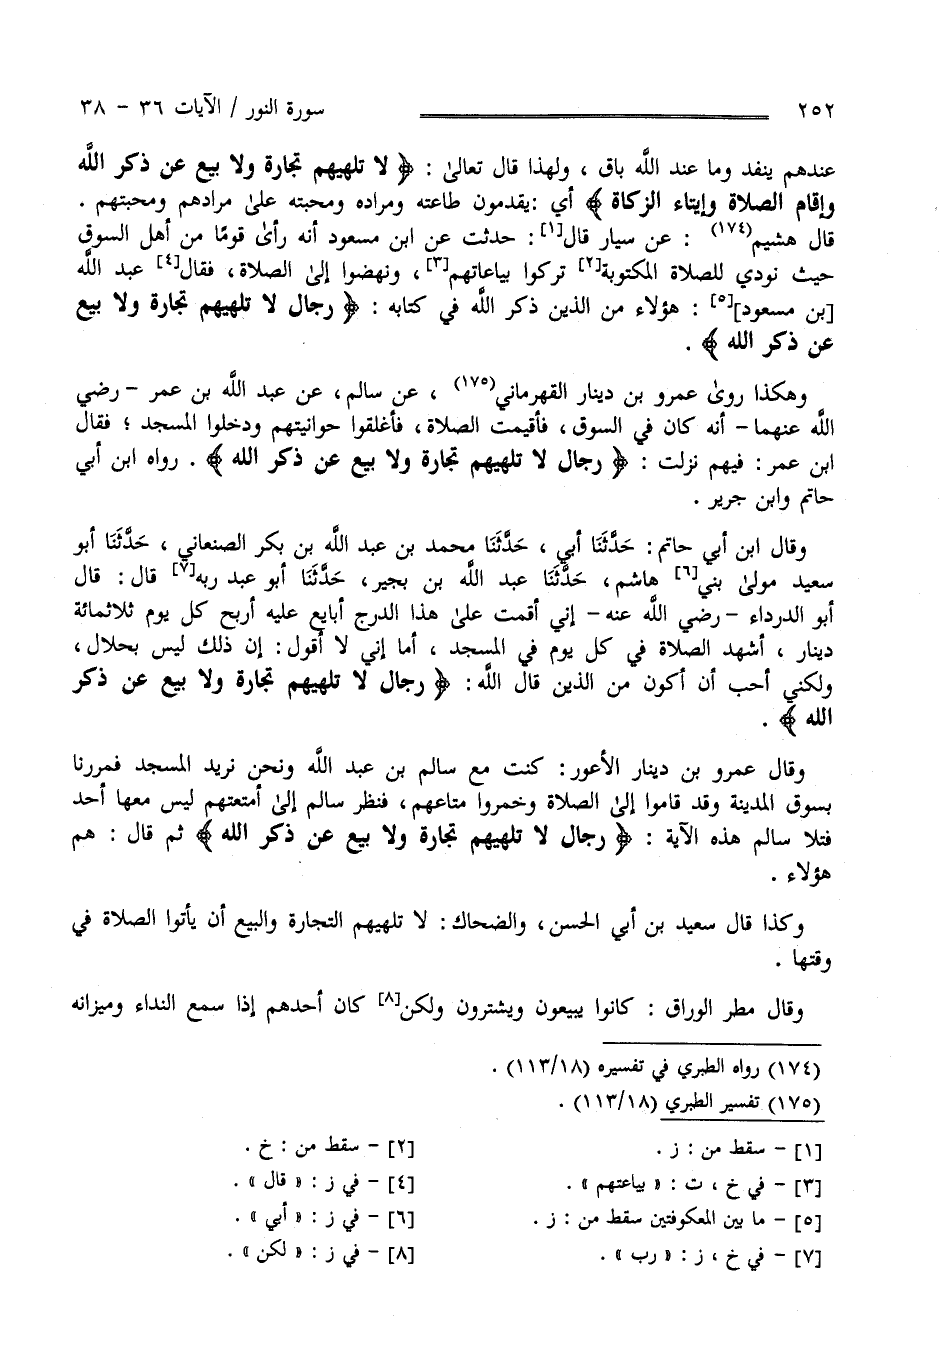 ٢٥٢ سورة النور / الآيات ٣٦ - ٣٨
عندهم ينفد وما عند اللَّه باق ، ولهذا قال تعالىٰ : ﴿ لا تلهيهم تجارة ولا بيع عن ذكر اللَّه
وإقام الصلاة وإيتاء الزكاة ﴾ أي :يقدمون طاعته ومراده ومحبته علىٰ مرادهم ومحبتهم .
قال هشيم(١٧٤) : عن سيار قال[١]: حدثت عن ابن مسعود أنه رأىٰ قومًا من أهل السوق
حيث نودي للصلاة المكتوبة[٢] تركوا بياعاتهم[٣]، ونهضوا إلىٰ الصلاة، فقال[٤] عبد اللَّه
[بن مسعود][٥] : هؤلاء من الذين ذكر اللَّه في كتابه : ﴿ رجال لا تلهيهم تجارة ولا بيع
عن ذكر الله ﴾ .
وهكذا روىٰ عمرو بن دينار القهرماني(١٧٥) ، عن سالم، عن عبد اللَّه بن عمر - رضي
اللَّه عنهما- أنه كان في السوق، فأقيمت الصلاة، فأغلقوا حوانيتهم ودخلوا المسجد ؛ فقال
ابن عمر: فيهم نزلت : ﴿ رجال لا تلهيهم تجارة ولا بيع عن ذكر الله ﴾ . رواه ابن أبي
حاتم وابن جرير .
وقال ابن أبي حاتم: حَدَّثَنَا أبي ، حَدَّثَنَا محمد بن عبد اللَّه بن بكر الصنعاني ، حَدَّثَنَا أبو
سعيد مولىٰ بني[٦] هاشم، حَدَّثَنَا عبد اللَّه بن بجير، حَدَّثَنَا أبو عبد ربه[٧] قال: قال
أبو الدرداء - رضي اللَّه عنه- إني أقمت علىٰ هذا الدرج أبايع عليه أربح كل يوم ثلاثمائة
دينار ، أشهد الصلاة في كل يوم في المسجد ، أما إني لا أقول: إن ذلك ليس بحلال،
ولكني أحب أن أكون من الذين قال اللَّه: ﴿ رجال لا تلهيهم تجارة ولا بيع عن ذكر
الله ﴾ .
وقال عمرو بن دينار الأعور: كنت مع سالم بن عبد اللَّه ونحن نريد المسجد فمررنا
بسوق المدينة وقد قاموا إلىٰ الصلاة وخمروا متاعهم، فنظر سالم إلىٰ أمتعتهم ليس معها أحد
فتلا سالم هذه الآية : ﴿ رجال لا تلهيهم تجارة ولا بيع عن ذكر الله ﴾ ثم قال : هم
هؤلاء .
وكذا قال سعيد بن أبي الحسن، والضحاك: لا تلهيهم التجارة والبيع أن يأتوا الصلاة في
وقتها .
وقال مطر الوراق : كانوا يبيعون ويشترون ولكن[٨] كان أحدهم إذا سمع النداء وميزانه
(١٧٤) رواه الطبري في تفسيره (١١٣/١٨) .
(١٧٥) تفسير الطبري (١١٣/١٨) .
[١] - سقط من : ز . [٢] - سقط من : خ .
[٣] - في خ ، ت : « بياعتهم » . [٤] - في ز : « قال » .
[٥] - ما بين المعكوفتين سقط من : ز . [٦] - في ز : « أبي » .
[٧] - في خ ، ز : « رب » . [٨] - في ز : « لكن » .